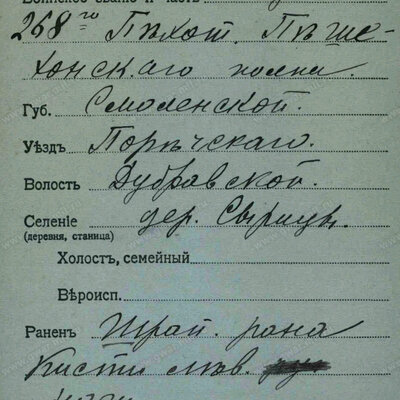 268 го Пѣхот. Пѣше-
хонскаго полка.
Губ. Смоленской.
Уѣздъ Порѣчскаго.
Волость Дубравской.
Селеніе дер. Сырицы.
(деревня, станица)
Холостъ, семейный
Вѣроисп.
Раненъ Шрап. рана
Кисти лѣв.